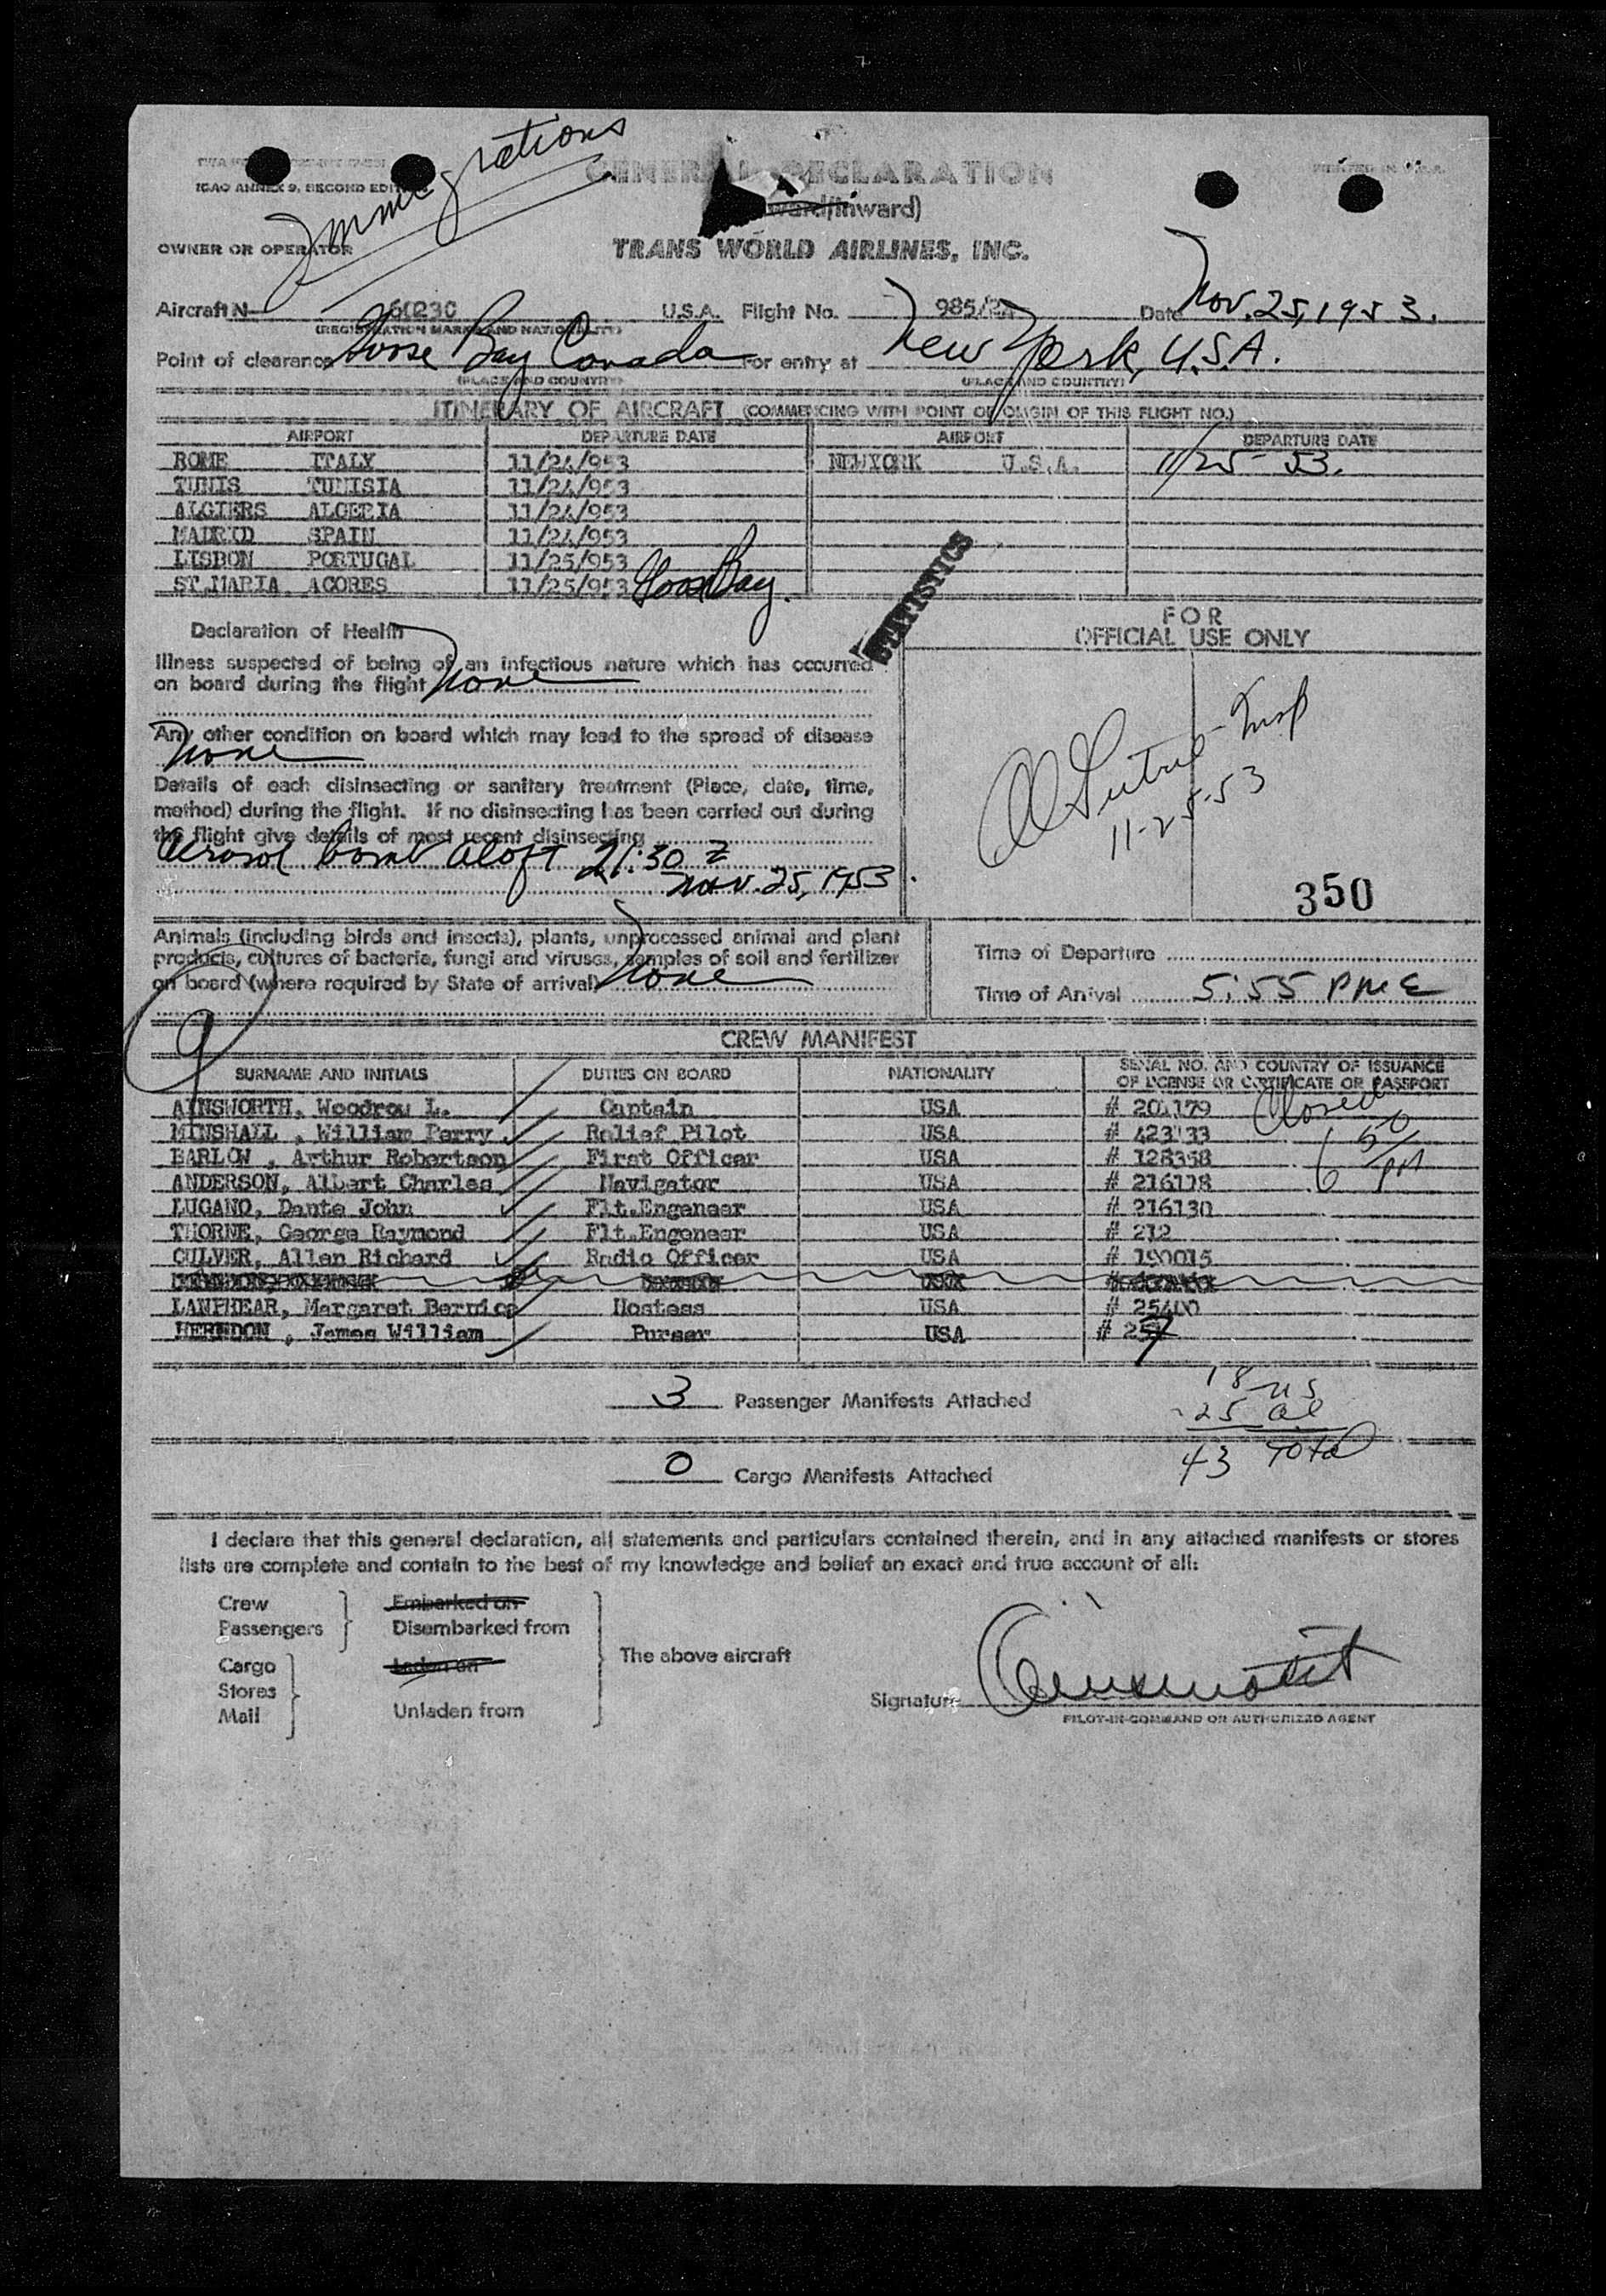 Immigrations
GENERAL DECLARATION
ICAO ANNEX 9, SECOND EDITION
ward/Inward)
OWNER OR OPERATOR
TRANS WORLD AIRLINES, INC.
Aircraft N- U.S.A. Flight No. 985/24 Date Nov. 25, 1953.
(REGISTRATION MARKS AND NATIONALITY)
Point of clearance Goose Bay Canada For entry at New York, U.S.A.
(PLACE AND COUNTRY) (PLACE AND COUNTRY)
ITINERARY OF AIRCRAFT (COMMENCING WITH POINT OF ORIGIN OF THIS FLIGHT NO.)
AIRPORT DEPARTURE DATE AIRPORT DEPARTURE DATE
ROME ITALY 11/24/953 NEWYORK U.S.A. 11/25-53.
TUNIS TUNISIA 11/24/953
ALGIERS ALGERIA 11/24/953
MADRID SPAIN 11/24/953
LISBON PORTUGAL 11/25/953
ST.MARIA ACORES 11/25/953 Goose Bay.
STATISTICS
FOR
OFFICIAL USE ONLY
Declaration of Health
Illness suspected of being of an infectious nature which has occurred
on board during the flight None
Any other condition on board which may lead to the spread of disease
None
Details of each disinsecting or sanitary treatment (Place, date, time,
method) during the flight. If no disinsecting has been carried out during
the flight give details of most recent disinsecting
Aerosol bomb aloft 21:30 Z
Nov. 25, 1953.
Insp
11-25-53
350
Animals (including birds and insects), plants, unprocessed animal and plant
products, cultures of bacteria, fungi and viruses, samples of soil and fertilizer
on board (where required by State of arrival) None
Time of Departure
Time of Arrival 5:55 PME
9
CREW MANIFEST
SURNAME AND INITIALS DUTIES ON BOARD NATIONALITY SERIAL NO. AND COUNTRY OF ISSUANCE
OF LICENSE OR CERTIFICATE OR PASSPORT
AINSWORTH, Woodrow L. Captain USA # 201179 Closed
MINSHALL , William Perry Relief Pilot USA # 423133 6 50
BARLOW , Arthur Robertson First Officer USA # 128358 PM
ANDERSON, Albert Charles Navigator USA # 216118
LUGANO, Dante John Flt.Engeneer USA # 216130
THORNE, George Raymond Flt.Engeneer USA # 212
CULVER, Allen Richard Radio Officer USA # 190015
LANPHEAR, Margaret Bernice Hostess USA # 25400
HERNDON , James William Purser USA # 257
3 Passenger Manifests Attached
18 US
25 al
43 Total
0 Cargo Manifests Attached
I declare that this general declaration, all statements and particulars contained therein, and in any attached manifests or stores
lists are complete and contain to the best of my knowledge and belief an exact and true account of all:
Crew Embarked on
Passengers Disembarked from
The above aircraft
Cargo Laden on
Stores
Mail Unladen from
Signature
PILOT-IN-COMMAND OR AUTHORIZED AGENT